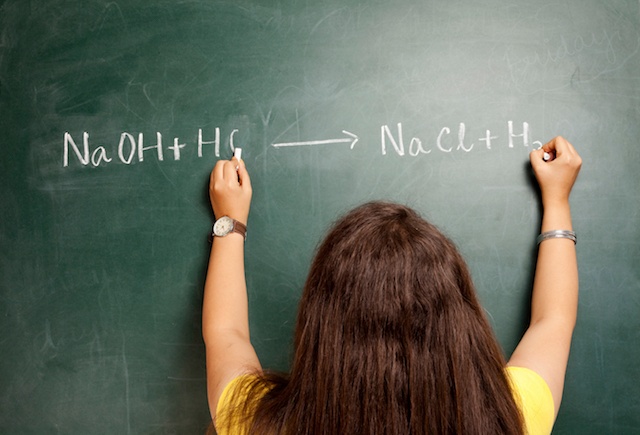 NaOH + HC → NaCl + H₂